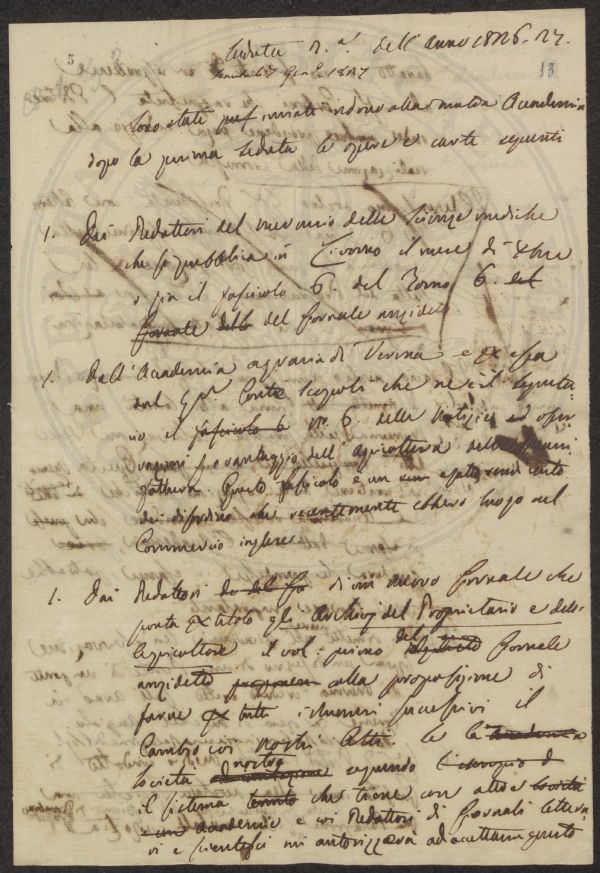 5
Seduta 2.ª dell'anno 1826-27.
13
1827
Sono state presentate in dono alla nostra Accademia
dopo la prima seduta le opere e carte seguenti
1. Dai Redattori del nuovo delle Scienze mediche
che si pubblica in Livorno il mese di Xbre
o sia il fascicolo 6. del Tomo 6. del
Giornale dell del Giornale anzidetto
1. Dall'Accademia agraria di Verona e per essa
dal Conte Scopoli che ne è il Segreta-
rio il fascicolo 6 No. 6. delle Notizie ed osser-
vazioni per vantaggio dell'agricoltura
Questo fascicolo è un
dei disordini che recentemente ebbero luogo nel
Commercio inglese
1. Dai Redattori di un nuovo Giornale che
porta per titolo gli Archivj del Proprietario e dell'
Agricoltore il vol: primo del Giornale
anzidetto colla proposizione di
farne per tutti i numeri successivi il
Cambio coi nostri Atti. Se la
Società nostra seguendo
il sistema tenuto che tiene con altre Società
e Accademie e coi Redattori di Giornali lettera-
ri e scientifici mi autorizzerà ad accettare questo